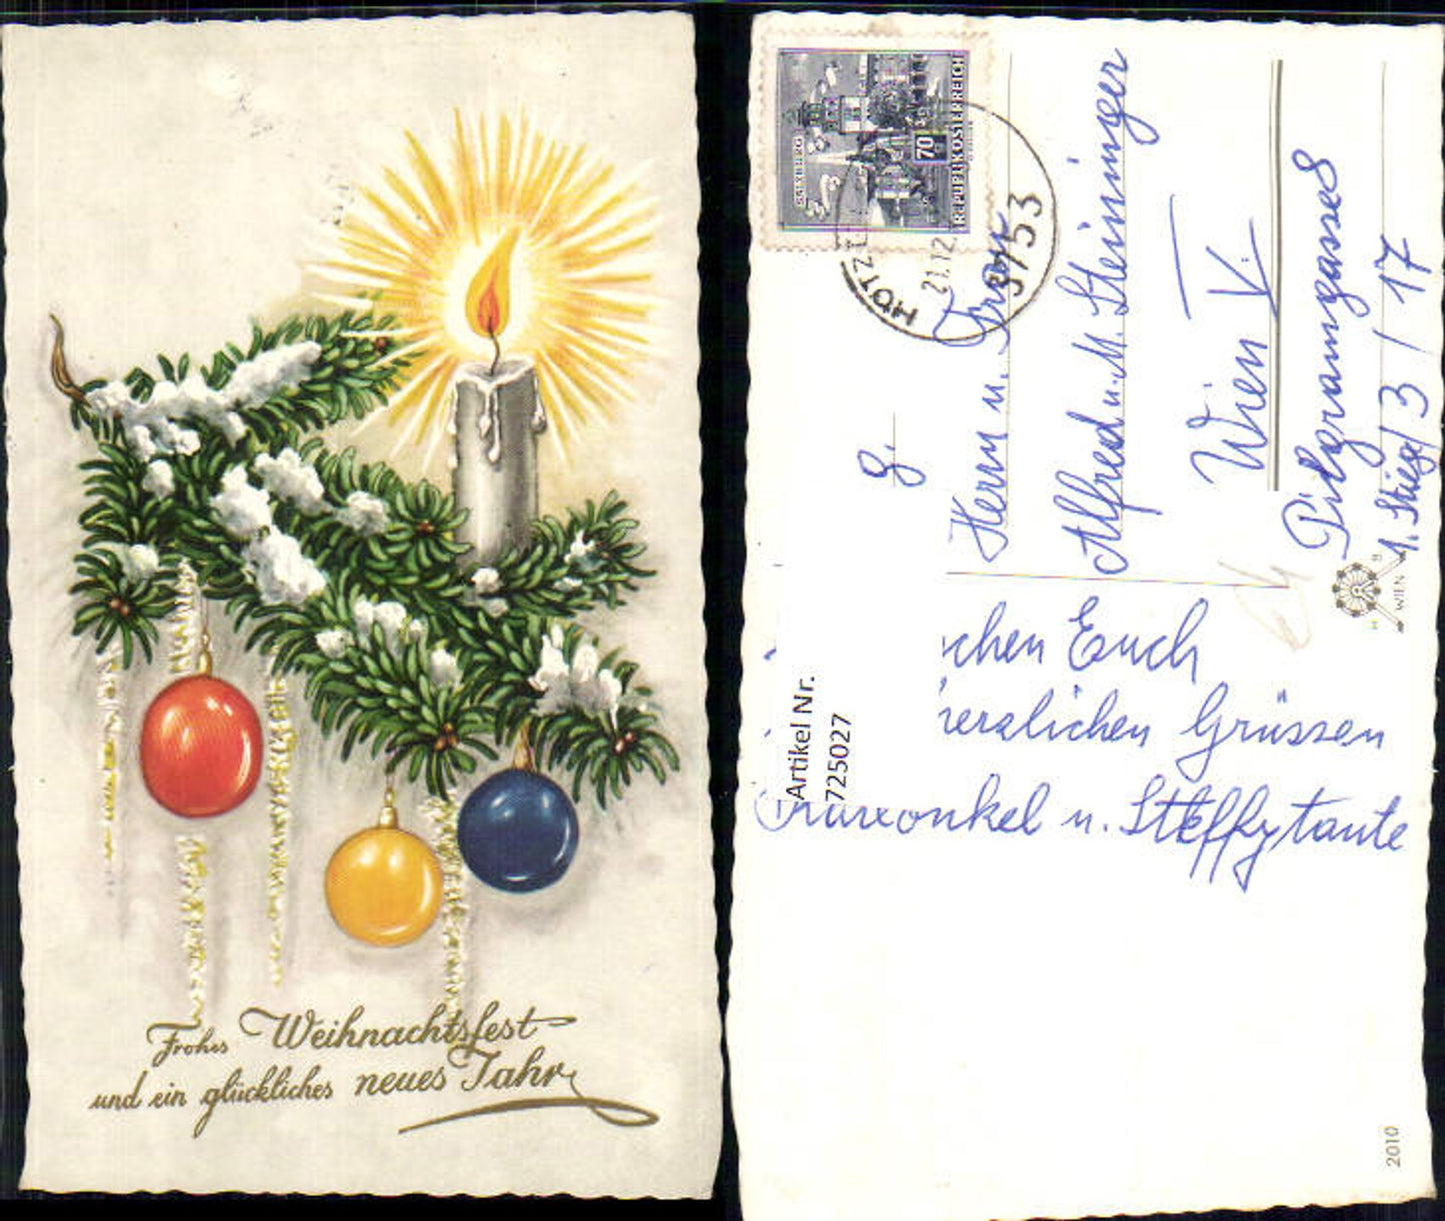 Frohes Weihnachtsfest
und ein glückliches neues Jahr
SALZBURG
70
REPUBLIK ÖSTERREICH
HOTZ
21.12
3153
g.
Herrn u. Frau
Alfred u. M. Steininger
Wien V.
Pilgramgasse 8
1. Stiege / 3 / 17
WIEN
chen Euch
herzlichen Grüssen
Artikel Nr.
725027
onkel u. Steffytante
2010